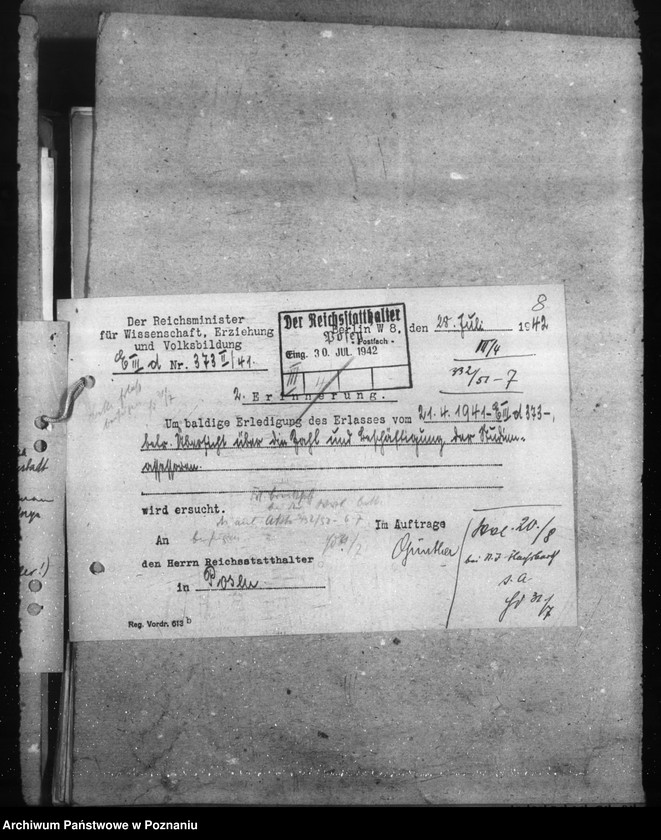 8
Der Reichsminister
für Wissenschaft, Erziehung
und Volksbildung
E III d Nr. 373 II/41.
Der Reichsstatthalter
Posen
Eing. 30. JUL. 1942
III
Berlin W 8, den 28. Juli 1942
- Postfach -
III/4
332/51-7
2. Erinnerung.
Um baldige Erledigung des Erlasses vom 21.4.1941-E III d 373-,
betr. Übersicht über die Zahl und Beschäftigung der Studien-
assessoren.
wird ersucht.
Im Auftrage
Günther
An
den Herrn Reichsstatthalter
in Posen
20./8
s.a.
31/7
Reg. Vordr. 613 b
Archiwum Państwowe w Poznaniu